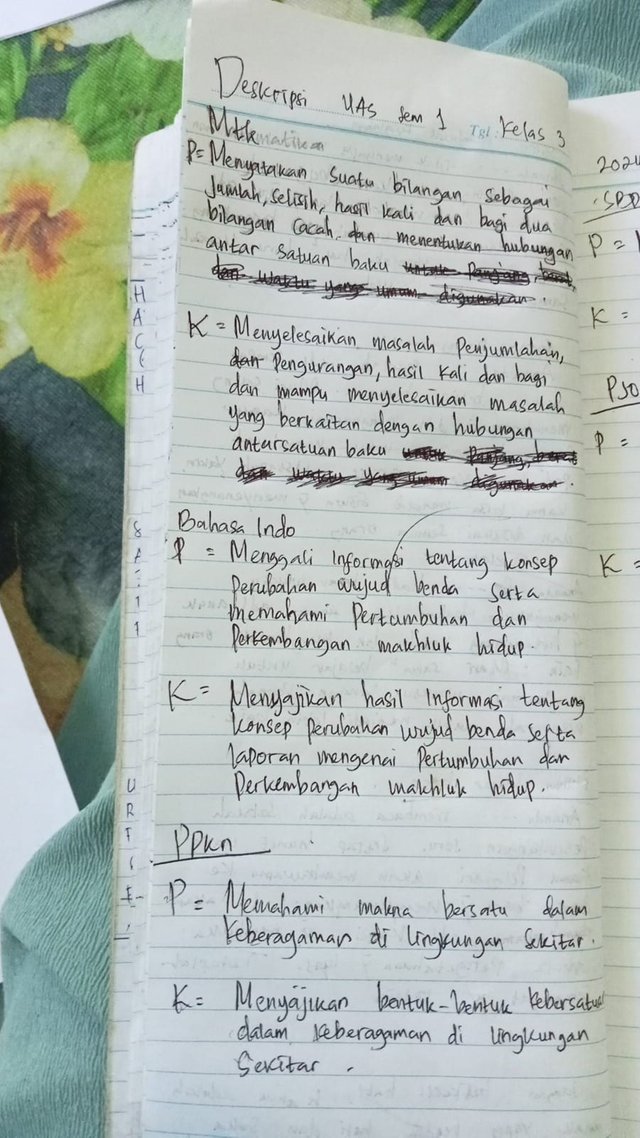 Deskripsi UAS Sem 1 Tgl: Kelas 3
Mtk
P = Menyatakan suatu bilangan sebagai
Jumlah, selisih, hasil kali dan bagi dua
bilangan cacah. dan menentukan hubungan
antar satuan baku untuk Panjang, berat
dan waktu yang umum digunakan.
K = Menyelesaikan masalah Penjumlahan,
dan Pengurangan, hasil kali dan bagi
dan mampu menyelesaikan masalah
yang berkaitan dengan hubungan
antarsatuan baku untuk Panjang, berat
dan waktu yang umum digunakan.
Bahasa Indo
P = Menggali Informasi tentang konsep
Perubahan wujud benda serta
memahami Pertumbuhan dan
Perkembangan makhluk hidup.
K = Menyajikan hasil Informasi tentang
konsep perubahan wujud benda serta
laporan mengenai Pertumbuhan dan
Perkembangan makhluk hidup.
PPKn
P = Memahami makna bersatu dalam
keberagaman di lingkungan sekitar.
K = Menyajikan bentuk-bentuk kebersatuan
dalam keberagaman di lingkungan
Sekitar.
2024
SBD
P =
K =
PJO
P =
K =